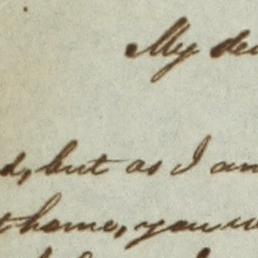 My dea
d, but as I am
t home, you w